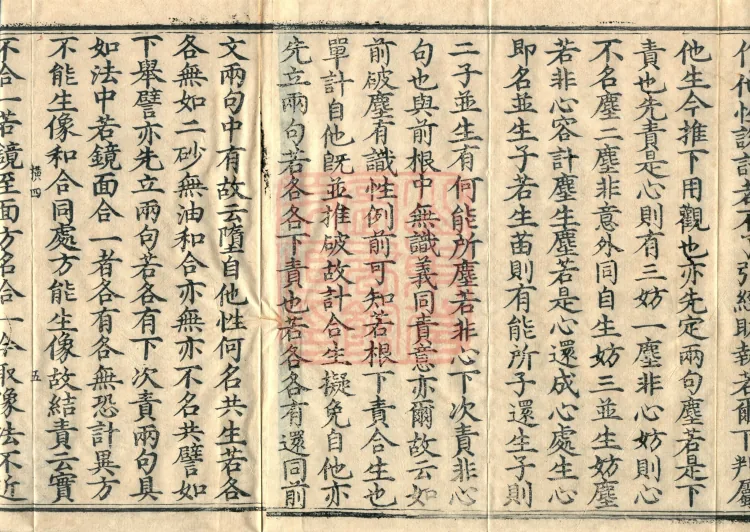 他生今推下用觀也亦先定兩句塵若是下
責也先責是心則有三妨一塵非心妨則心
不名塵二塵非意外同自生妨三並生妨塵
若非心容計塵生塵若是心還成心處生心
即名並生子若生苗則有能所子還生子則
二子並生有何能所塵若非心下次責非心
句也與前根中無識義同責意亦爾故云如
前破塵有識性例前可知若根下責合生也
單計自他旣並推破故計合生擬免自他亦
先立兩句若各各下責也若各各有還同前
文兩句中有故云墮自他性何名共生若各
各無如二砂無油和合亦無亦不名共譬如
下舉譬亦先立兩句若各有下次責兩句具
如法中若鏡面合一者各有各無恐計異方
不能生像和合同處方能生像故結責云實
橫四
五
不合一若鏡至面方名合一今取像法不近